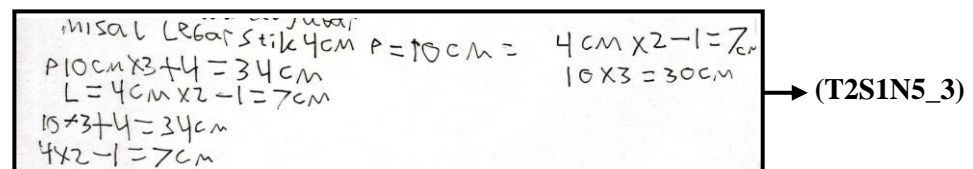 misal Lebar Stik 4cm P = 10 cm = 4 cm x 2 - 1 = 7cm
P 10cm x 3 + 4 = 34 cm 10 x 3 = 30 cm
L = 4cm x 2 - 1 = 7cm
10 x 3 + 4 = 34cm
4 x 2 - 1 = 7cm
(T2S1N5_3)